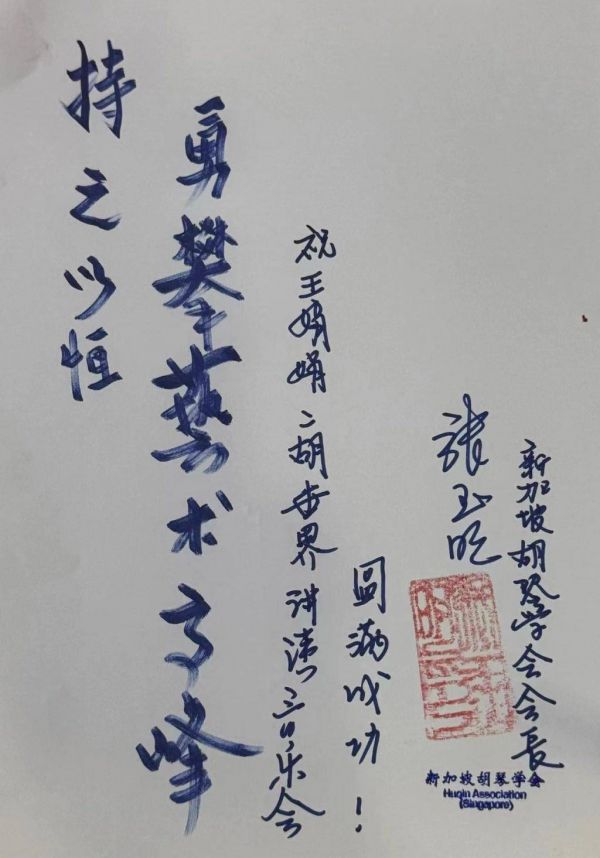 持之以恒
勇攀藝术高峰
祝王娟娟二胡世界讲演音乐会
圆满成功！
张玉明
新加坡胡琴学会会長
新加坡胡琴学会
Huqin Association
(Singapore)